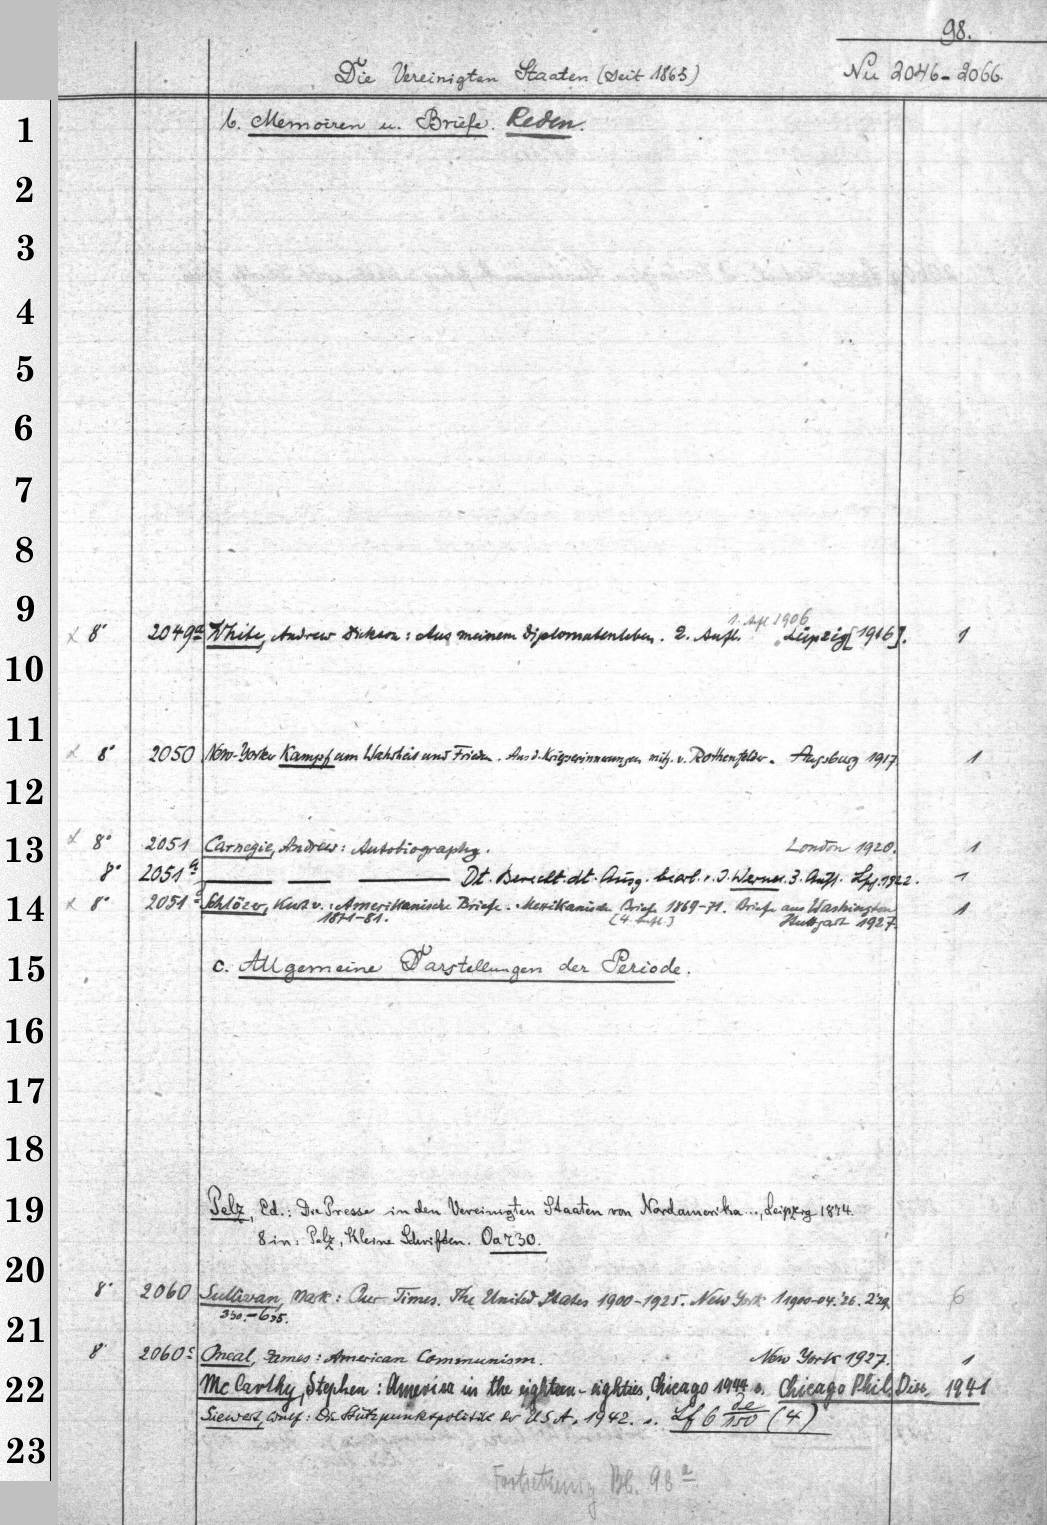 98.
Die Vereinigten Staaten (seit 1865) Nu 2046-2066
1 b. Memoiren u. Briefe. Reden.
2
3
4
5
6
7
8
9
1. Afl 1906
8° 2049a White, Andrew Dickson: Aus meinem Diplomatenleben. 2. Aufl. Leipzig [1916]. 1
10
11
8° 2050 New-Yorker Kampf um Wahrheit und Frieden. Aus d. Kriegserinnerungen mitg. v. Rothenfelder. Augsburg 1917. 1
12
13 8° 2051 Carnegie, Andrew: Autobiography. London 1920. 1
8° 2051a Dt. Berecht. dt. Ausg. bearb. v. J. Werner. 3. Aufl. Lpz. 1922. 1
14 8° 2051 Schlözer, Kurd v.: Amerikanische Briefe. Mexikanische Briefe 1869-71. Briefe aus Washington
1871-81. [4. Aufl.] Stuttgart 1927. 1
15 c. Allgemeine Darstellungen der Periode.
16
17
18
19 Pelz, Ed.: Die Presse in den Vereinigten Staaten von Nordamerika..., Leipzig 1874.
8 in: Pelz, Kleine Schriften. Oa 730.
20
8° 2060 Sullivan, Mark: Our Times. The United States 1900-1925. New York 1 1900-04. '26. 2 '29. 6
21 3 '30.-6 '35.
8° 2060c Oneal, James: American Communism. New York 1927. 1
22 McCarthy, Stephen: America in the eighteen-eighties. Chicago 1944 s. Chicago Phil. Diss. 1941
Siewert, Wulf: Die Stützpunktpolitik der USA. 1942. s. Lf 6 de/150 (4)
23
Fortsetzung Bl. 98a